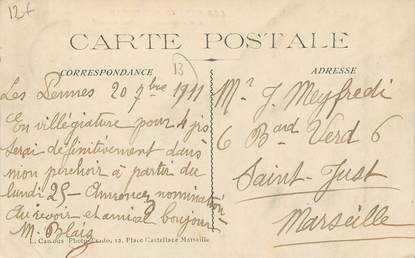 12+
CARTE POSTALE
CORRESPONDANCE
13
ADRESSE
Les Pennes 20 7bre 1911
En villégiature pour 4 jrs
serai définitivement dans
mon perchoir à partir du
lundi 25 - Annoncez nomination
Au revoir et amical bonjour
M. Blaiz
Mr J. Meyfredi
6 Bard Verd 6
Saint-Just
Marseille
L. Photo 12, Place Castellane Marseille